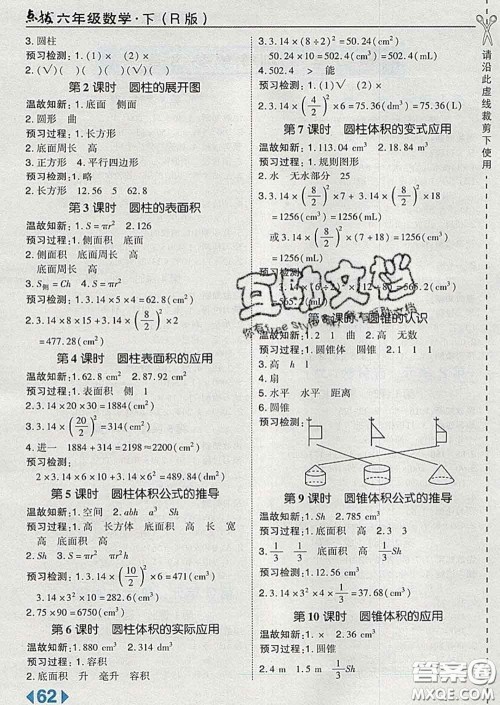 点拨 六年级数学·下(R版)
3.圆柱
预习检测:1.(√)(×)(×)
2.(√)( )(√)( )(√)( )
第2课时 圆柱的展开图
温故知新:1.底面 侧面
2.圆形 曲
预习过程:1.长方形
2.底面周长 高
3.正方形 4.平行四边形
预习检测:1.略
2.长方形 12.56 5 62.8
第3课时 圆柱的表面积
温故知新:1.S=πr² 2.126
预习过程:1.侧面积 底面
2.侧面积 底面周长 高
3.S侧=Ch 4.S=πr²
预习检测:1.3.14×6×2=37.68(cm²)
2.3.14×15×8+3.14×(8/2)²×2
=477.28(cm²)
第4课时 圆柱表面积的应用
温故知新:1.62.8 cm² 2.87.92 cm²
预习过程:1.表面积 侧 1
2.3.14×20×30=1884(cm²)
3.3.14×(20/2)²=314(cm²)
4.进一 1884+314=2198≈2200(cm²)
预习检测:
2×3.14×6×10+3.14×6²=489.84(dm²)
第5课时 圆柱体积公式的推导
温故知新:1.空间 2.abh a³ Sh
预习过程:1.高 长方体 底面积 高 宽
底面积 高 2.Sh πr² πr²h
预习检测:1.3.14×(10/2)²×6=471(cm³)
3.14×3²×10=282.6(cm³)
2.75×90=6750(cm³)
第6课时 圆柱体积的实际应用
温故知新:1.1130.4 dm³ 2.552.64 cm³
预习过程:1.容积
2.底面积 升 毫升 容积
62
3.3.14×(8÷2)²=50.24(cm²)
50.24×10=502.4(cm³)=502.4(mL)
4.502.4 > 能
预习检测:1.(√)(×)
2.3.14×(4/2)²×6=75.36(dm³)=75.36(L)
第7课时 圆柱体积的变式应用
温故知新:1.113.04 cm³ 2.18.84 m³
预习过程:1.规则图形
2.水 无水部分 25
3.3.14×(8/2)²×7+3.14×(8/2)²×18
=1256(cm³)=1256(mL)
或3.14×(8/2)²×(7+18)=1256(cm³)
=1256(mL)
预习检测:
565.2(cm³)
第8课时 圆锥的认识
温故知新:1.2 1 曲 高 无数
预习过程:1.圆锥体 圆锥 2.圆 曲
3.高 h 1
4.扇
5.水平 水平 距离
6.圆锥
预习检测:
第9课时 圆锥体积公式的推导
温故知新:1.Sh 2.785 cm³
预习过程:1.底面积 高 2.3 1/3
3.1/3 1/3 底面积 高 1/3Sh
预习检测:1/3×3.14×3²×4=37.68(cm³)
第10课时 圆锥体积的应用
温故知新:1.1/3Sh 2.36 cm³
预习过程:1.体积
2.4 m 1.5 m 1/3Sh
请沿此虚线裁剪下使用
互助文档
答案圈
MXQE.COM